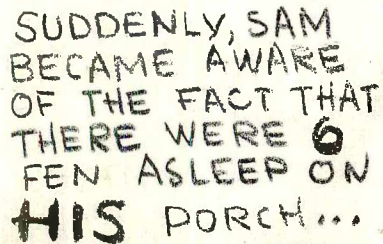 SUDDENLY, SAM
BECAME AWARE
OF THE FACT THAT
THERE WERE 6
FEN ASLEEP ON
HIS PORCH...